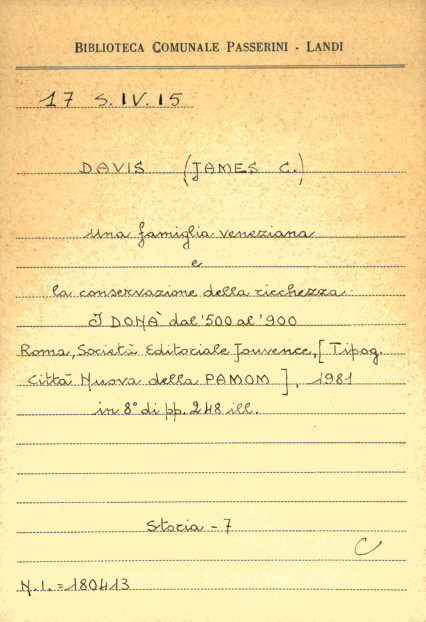 BIBLIOTECA COMUNALE PASSERINI - LANDI
17 S.IV.15
DAVIS (JAMES C.)
una famiglia veneziana
e
la conservazione della ricchezza
I DONÀ dal '500 al '900
Roma, Società Editoriale Jouvence, [Tipog.
Città Nuova della PAMOM], 1981
in 8° di pp. 248 ill.
Storia - 7
C
N.I. = 180413